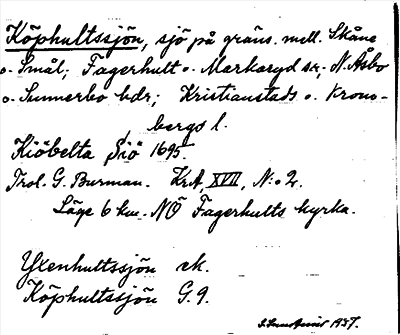 Köphultssjön, sjö på gräns. mell. Skåne
o. Smål.; Fagerhult o. Markaryd sr; N. Åsbo
o. Sunnerbo hdr; Kristianstads o. Krono-
bergs l.
Kiöbelta Siö 1695.
Trol. G. Burman. KrA, XVII, N:o 2.
Läge 6 km. NÖ Fagerhults kyrka.
Yxenhultssjön ek.
Köphultssjön G. 9.
1937.